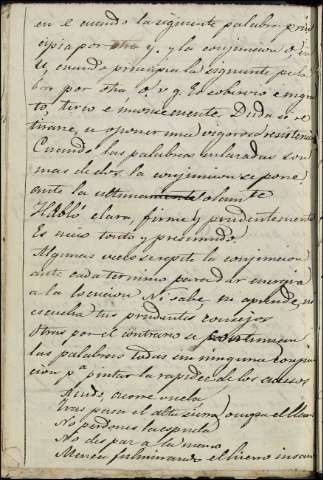 en el cuando la siguiente palabra prin
cipia por otra y. y la conjuncion o, en
u, cuando principia la siguiente pala
bra por otra o, v g. Es cobarde e ingra
to, terco e inconciente. Duda si re
tirarse, u oponer una vigorosa resistencia
Cuando las palabras enlazadas son
mas de dos la conjuncion se pone
ante la ultima solamte
Habló clara, firme y prudentemente
Es necio tonto y presumido.
Algunas veces se repite la conjuncion
ante cada termino para dar energia
a la locucion Ni sabe, ni aprende, ni
escucha tus prudentes consejos
Otras por el contrario se
las palabras todas sin ninguna conjun
cion pa pintar la rapidez de los sucesos
Acude, corre vuela
Tras pasa el alta sierra ocupa el llano
No perdones la espuela
No des paz a la mano
Menea fulminando el hierro insano